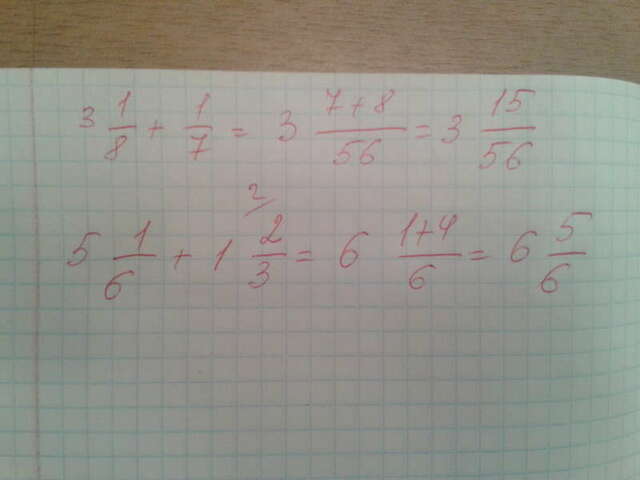 3 1/8 + 1/7 = 3 7+8/56 = 3 15/56
2/
5 1/6 + 1 2/3 = 6 1+4/6 = 6 5/6